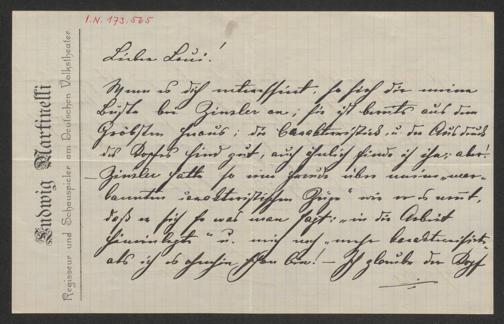 I.N. 173.565
Ludwig Martinelli
Regisseur und Schauspieler am Deutschen Volkstheater
Lieber Loui!
Wenn es dich interessiert, so sieh dir meine
Büste bei Zinsler an; sie ist bereits aus dem
Gröbsten heraus; die Charakteristik u. der Ausdruck
des Kopfes sind gut, auch ähnlich finde ich ihn; aber!
– Zinsler hatte so eine Freude über meine „mar-
kanten charakteristischen Züge" wie er es nennt,
daß er sich so was man sagt: „in die Arbeit
hineinlegte" u. mich noch „mehr
als ich es ohnehin schon bin! – Ich glaube der Kopf